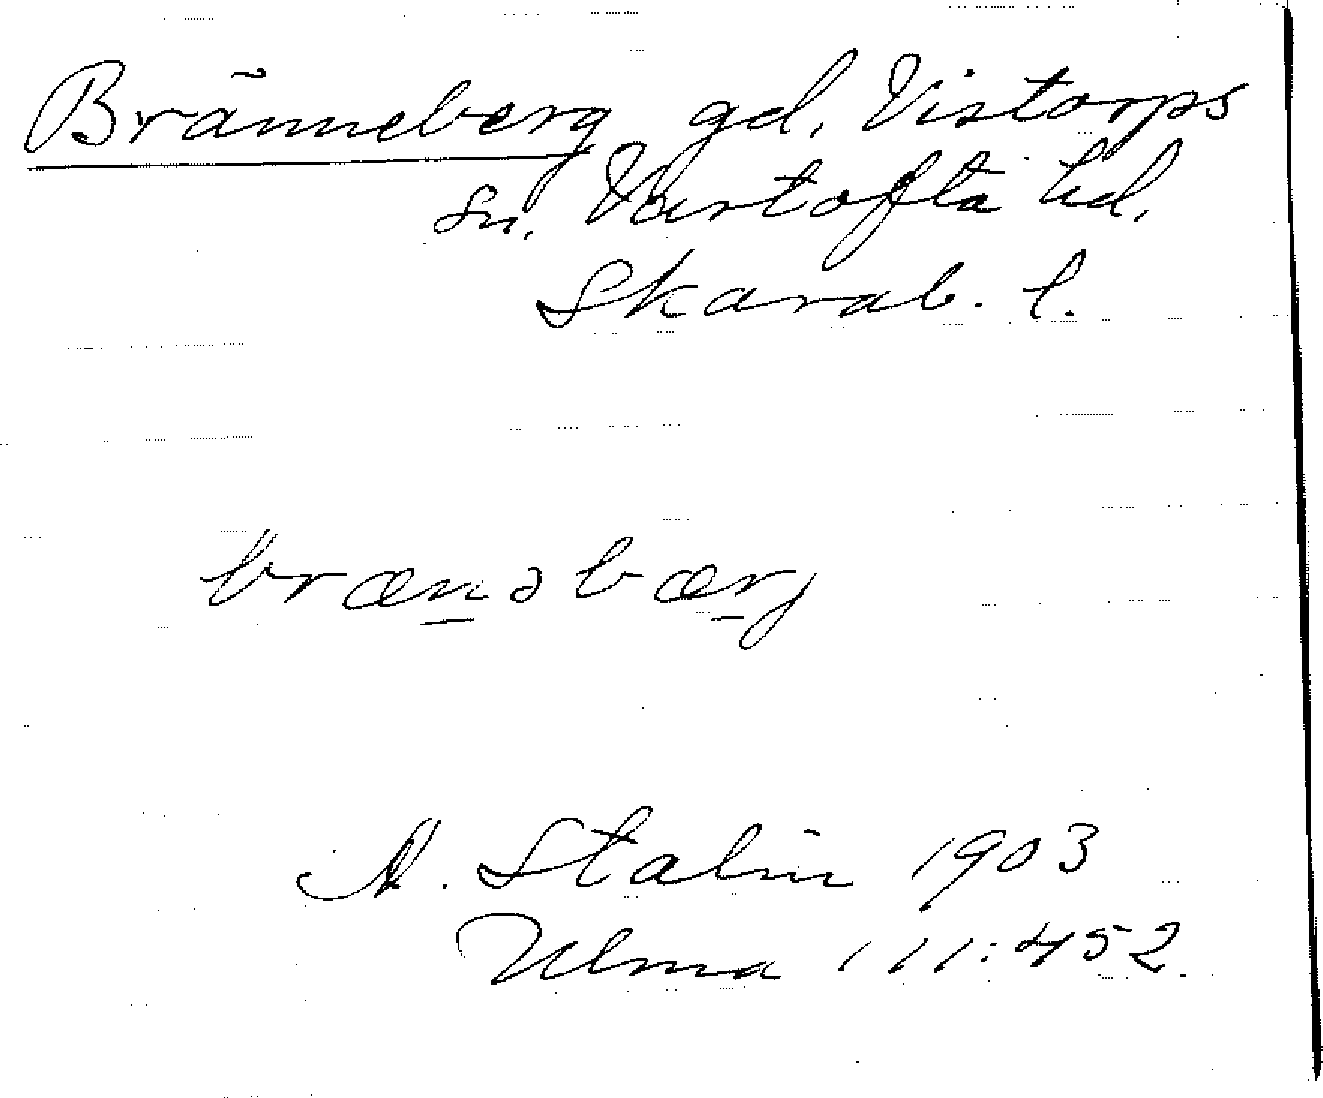 Bränneberg gd. Vistorps
sn. Vartofta hd.
Skarab. l.
brænəbærj
A. Stalin 1903
Ulma 111:452.